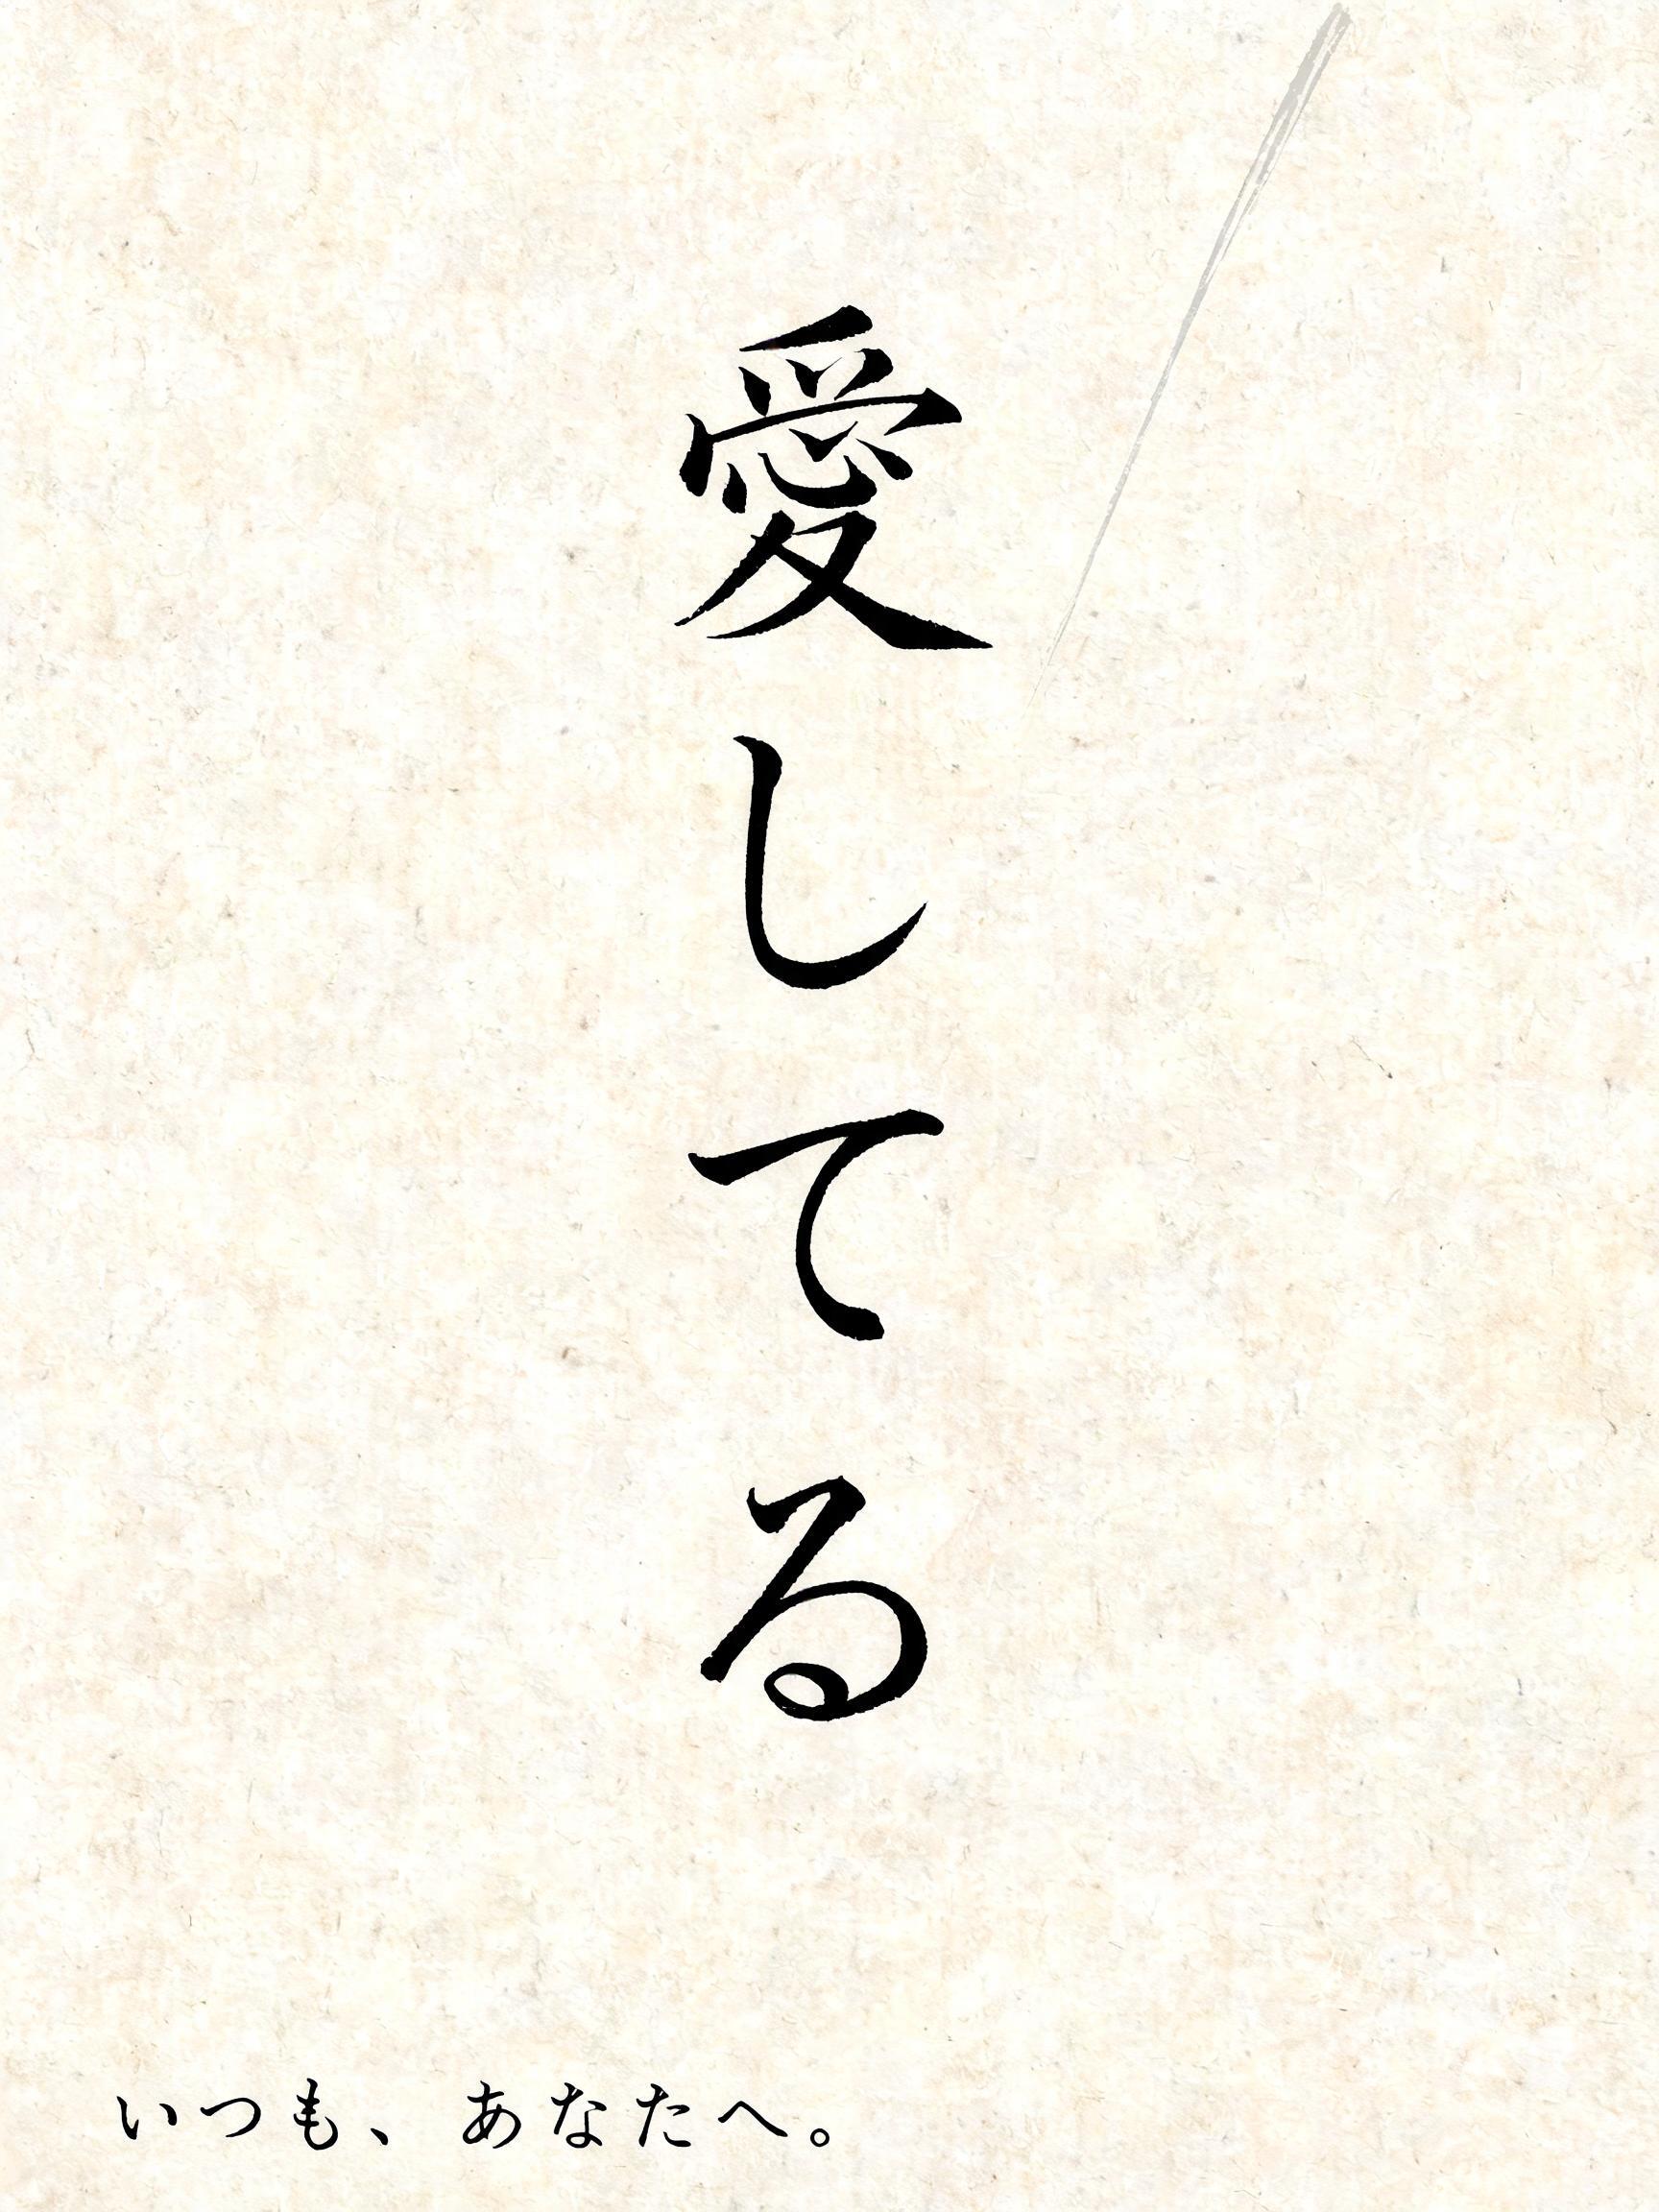 愛してる
いつも、あなたへ。